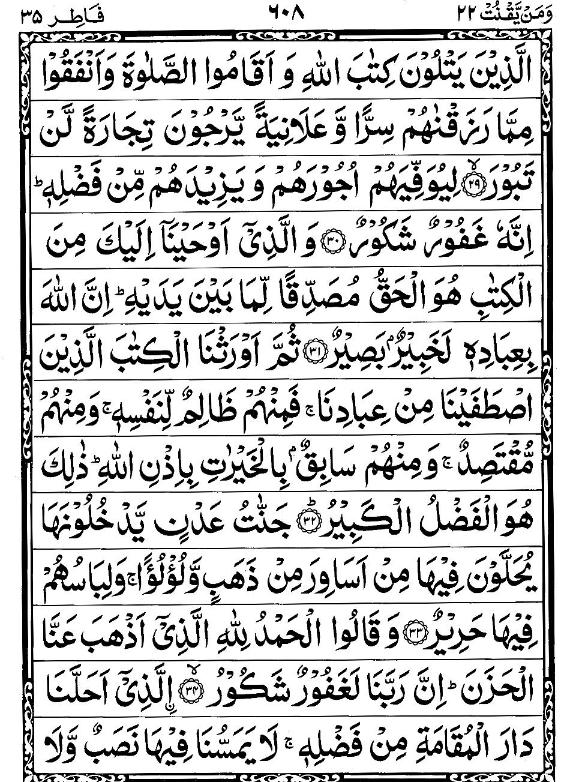 وَمَنْ يَّقْنُتْ ٢٢ ٦٠٨ فَاطِر ٣٥
الَّذِيْنَ يَتْلُوْنَ كِتٰبَ اللهِ وَ اَقَامُوا الصَّلٰوةَ وَاَنْفَقُوْا
مِمَّا رَزَقْنٰهُمْ سِرًّا وَّ عَلَانِيَةً يَّرْجُوْنَ تِجَارَةً لَّنْ
تَبُوْرَ ۙ﴿۲۹﴾ لِيُوَفِّيَهُمْ اُجُوْرَهُمْ وَ يَزِيْدَهُمْ مِّنْ فَضْلِهٖ ؕ
اِنَّهٗ غَفُوْرٌ شَكُوْرٌ ﴿۳۰﴾ وَ الَّذِيْۤ اَوْحَيْنَاۤ اِلَيْكَ مِنَ
الْكِتٰبِ هُوَ الْحَقُّ مُصَدِّقًا لِّمَا بَيْنَ يَدَيْهِ ؕ اِنَّ اللهَ
بِعِبَادِهٖ لَخَبِيْرٌۢ بَصِيْرٌ ﴿۳۱﴾ ثُمَّ اَوْرَثْنَا الْكِتٰبَ الَّذِيْنَ
اصْطَفَيْنَا مِنْ عِبَادِنَا ۚ فَمِنْهُمْ ظَالِمٌ لِّنَفْسِهٖ ۚ وَمِنْهُمْ
مُّقْتَصِدٌ ۚ وَمِنْهُمْ سَابِقٌۢ بِالْخَيْرٰتِ بِاِذْنِ اللهِ ؕ ذٰلِكَ
هُوَ الْفَضْلُ الْكَبِيْرُ ؕ﴿۳۲﴾ جَنّٰتُ عَدْنٍ يَّدْخُلُوْنَهَا
يُحَلَّوْنَ فِيْهَا مِنْ اَسَاوِرَ مِنْ ذَهَبٍ وَّلُؤْلُؤًا ۚ وَلِبَاسُهُمْ
فِيْهَا حَرِيْرٌ ﴿۳۳﴾ وَ قَالُوا الْحَمْدُ لِلهِ الَّذِيْۤ اَذْهَبَ عَنَّا
الْحَزَنَ ؕ اِنَّ رَبَّنَا لَغَفُوْرٌ شَكُوْرُ ۙ﴿۳۴﴾ ۨالَّذِيْۤ اَحَلَّنَا
دَارَ الْمُقَامَةِ مِنْ فَضْلِهٖ ۚ لَا يَمَسُّنَا فِيْهَا نَصَبٌ وَّلَا